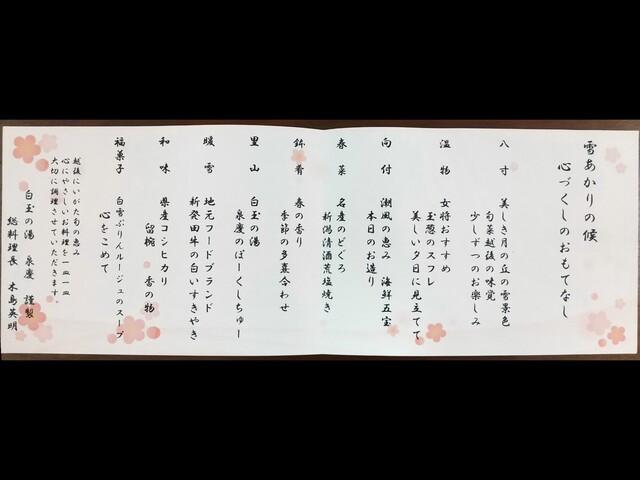 雪あかりの候
心づくしのおもてなし
八寸 美しき月の丘の雪景色
旬菜越後の味覚
少しずつのお楽しみ
温物 女将おすすめ
玉葱のスフレ
美しい夕日に見立てて
向付 潮風の恵み 海鮮五宝
本日のお造り
春菜 名産のどぐろ
新潟清酒荒塩焼き
鉢肴 春の香り
季節の多喜合わせ
里山 白玉の湯
泉慶のぽーくしちゅー
暖雪 地元フードブランド
新発田牛の白いすきやき
和味 県産コシヒカリ
留椀 香の物
福菓子 白雪ぷりんルージュのスープ
心をこめて
越後にいがた旬の恵み
心にやさしいお料理を一皿一皿
大切に調理させていただきます。
白玉の湯 泉慶 謹製
総料理長 木島英明